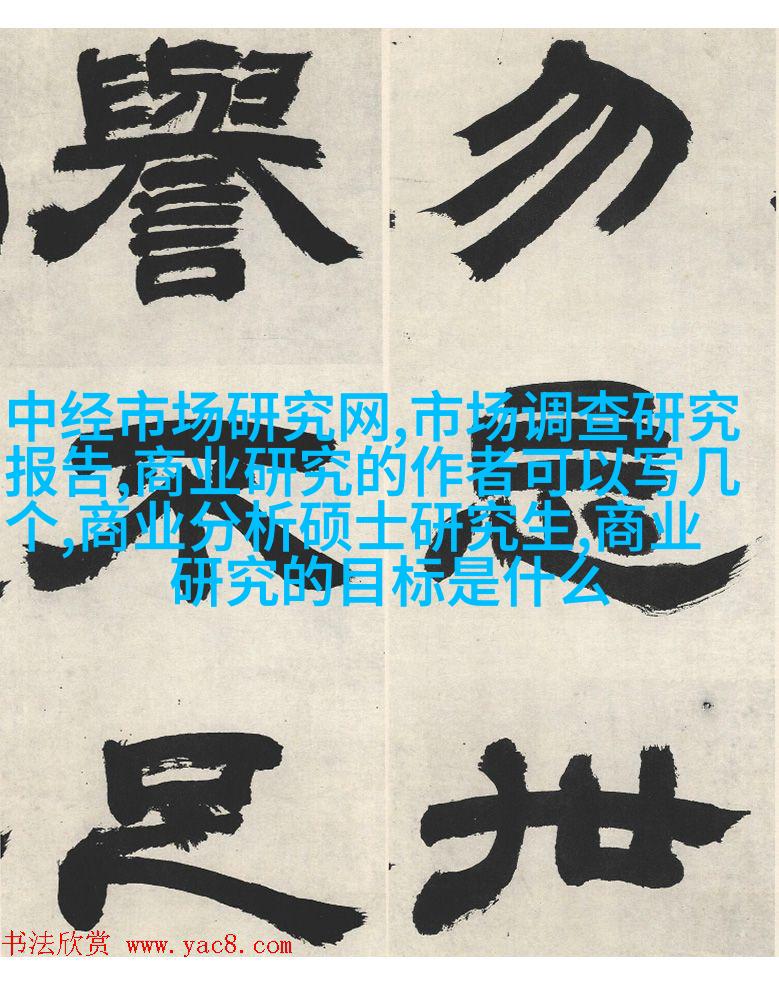 勿忘世
譽不足
中经市场研究网,市场调查研究
报告,商业研究的作者可以写几
个,商业分析硕士研究生,商业
研究的目标是什么
书法欣赏 www.yac8.com